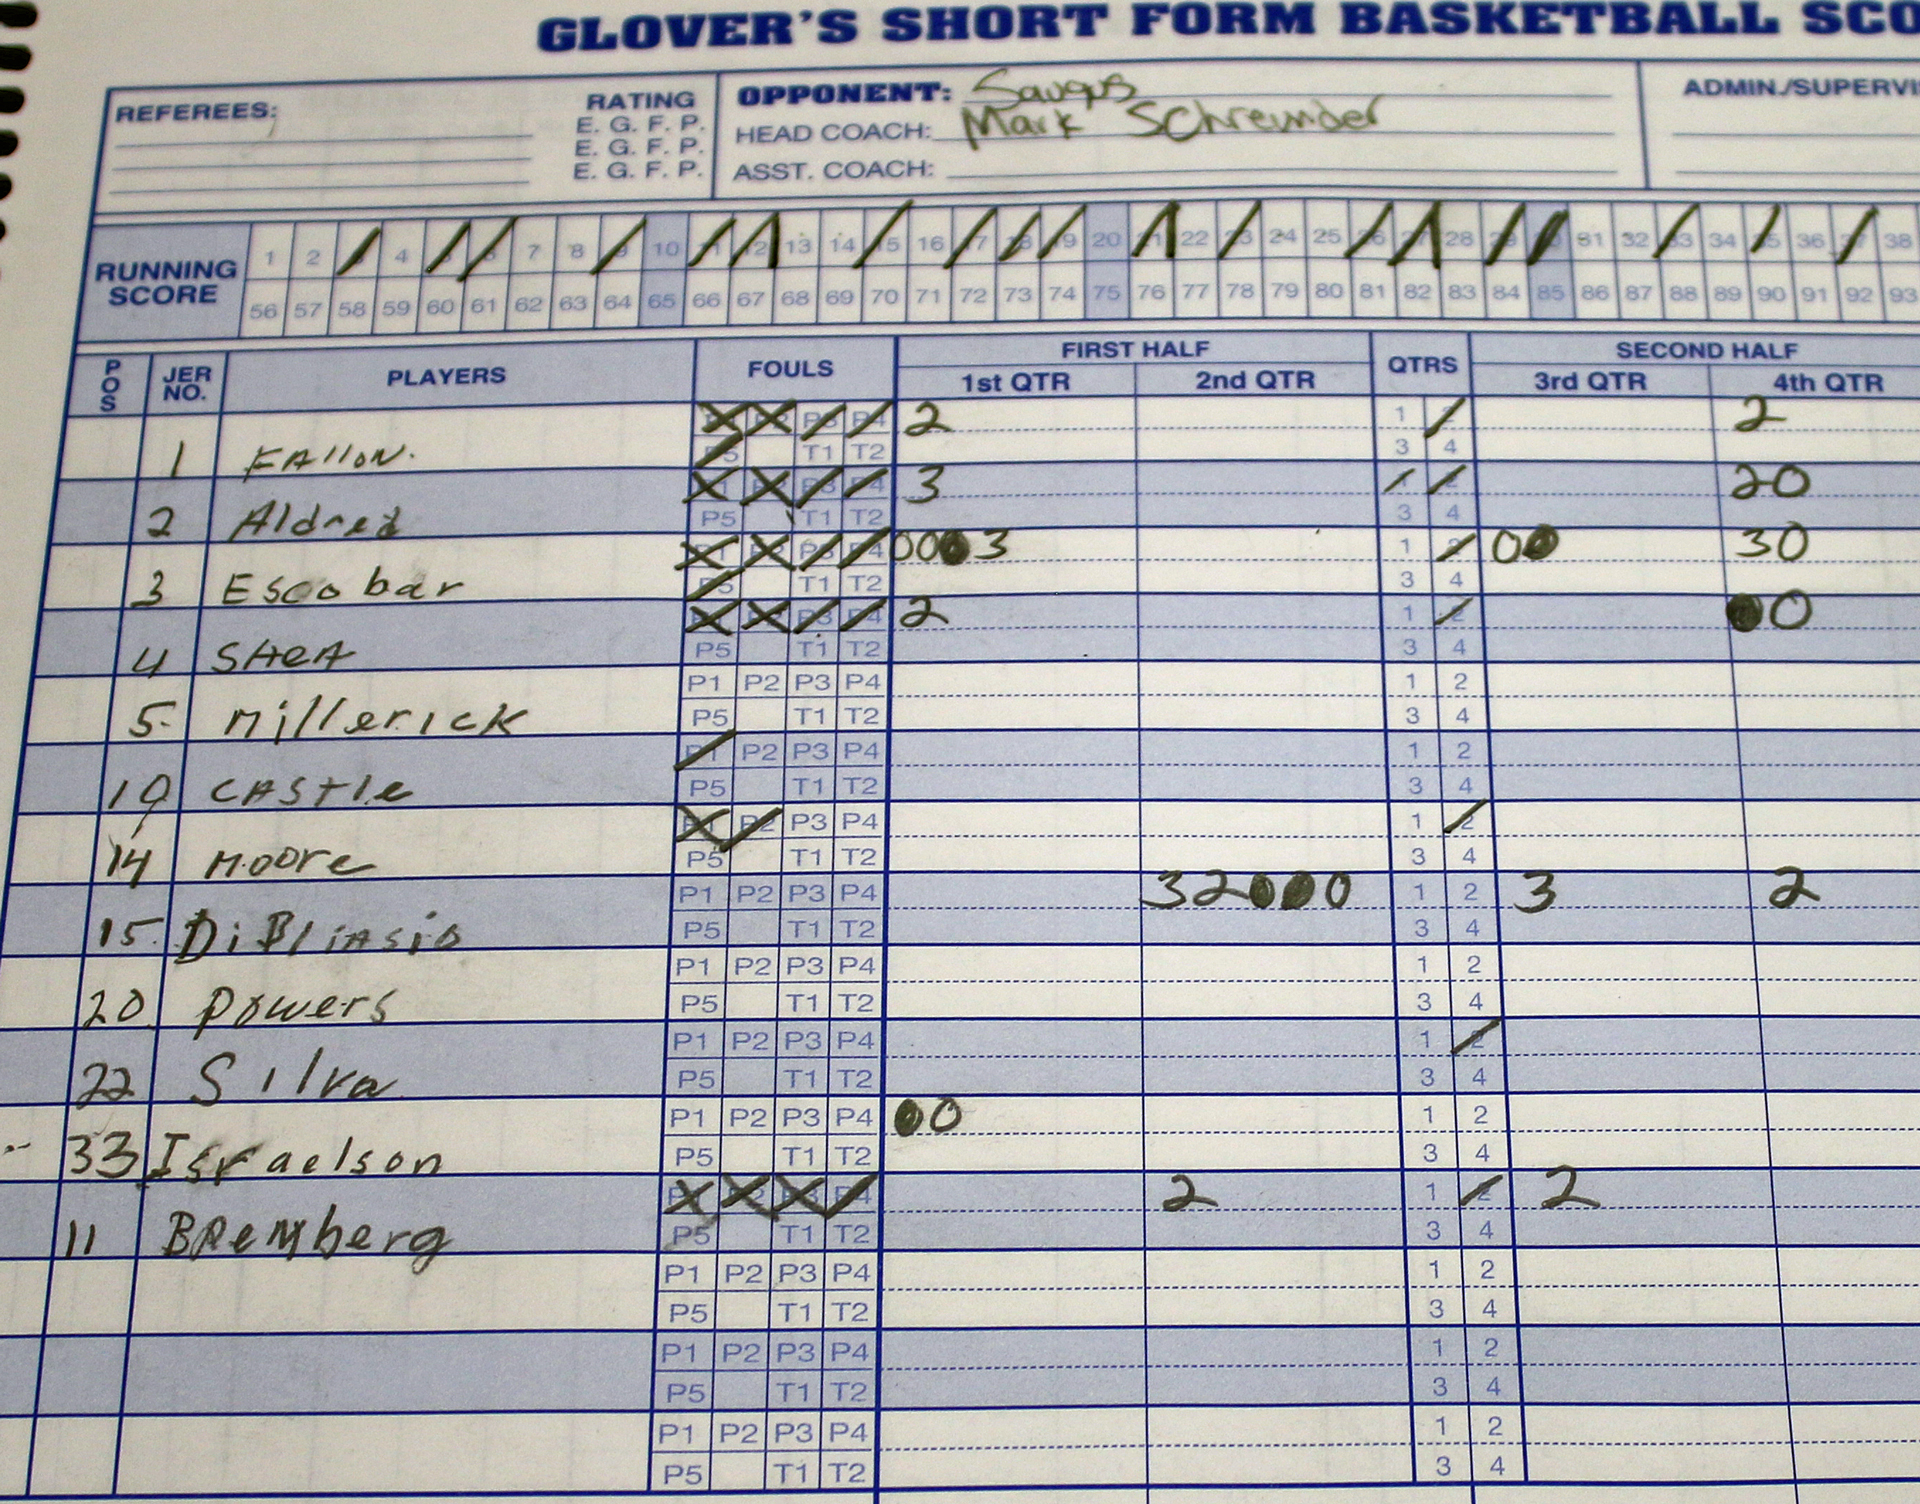 GLOVER'S SHORT FORM BASKETBALL SCO
REFEREES:
RATING
E. G. F. P.
E. G. F. P.
E. G. F. P.
OPPONENT: Saugus
HEAD COACH: Mark Schreunder
ASST. COACH:
ADMIN./SUPERVI
RUNNING SCORE
1 2 3 4 5 6 7 8 9 10 11 12 13 14 15 16 17 18 19 20 21 22 23 24 25 26 27 28 29 30 31 32 33 34 35 36 37 38
56 57 58 59 60 61 62 63 64 65 66 67 68 69 70 71 72 73 74 75 76 77 78 79 80 81 82 83 84 85 86 87 88 89 90 91 92 93
POS JER NO. PLAYERS FOULS FIRST HALF QTRS SECOND HALF
1st QTR 2nd QTR 3rd QTR 4th QTR
P3 P4 2 1 2 2
1 FAllon. P5 T1 T2 3 4
P4 3 1 2 20
2 Aldred P5 T1 T2 3 4
P1 P3 P4 00 0 3 1 2 00 30
3 Escobar P5 T1 T2 3 4
P3 P4 2 1 2 00
4 SHeA P5 T1 T2 3 4
P1 P2 P3 P4 1 2
5 Millerick P5 T1 T2 3 4
P1 P2 P3 P4 1 2
10 CAStle P5 T1 T2 3 4
P1 P2 P3 P4 1 2
14 Moore P5 T1 T2 3 4
P1 P2 P3 P4 32000 1 2 3 2
15 DiBliasio P5 T1 T2 3 4
P1 P2 P3 P4 1 2
20 Powers P5 T1 T2 3 4
P1 P2 P3 P4 1 2
22 Silva P5 T1 T2 3 4
P1 P2 P3 P4 00 1 2
33 Israelson P5 T1 T2 3 4
P1 P2 P3 P4 2 1 2 2
11 BRemberg P5 T1 T2 3 4
P1 P2 P3 P4 1 2
P5 T1 T2 3 4
P1 P2 P3 P4 1 2
P5 T1 T2 3 4
P1 P2 P3 P4 1 2
P5 T1 T2 3 4